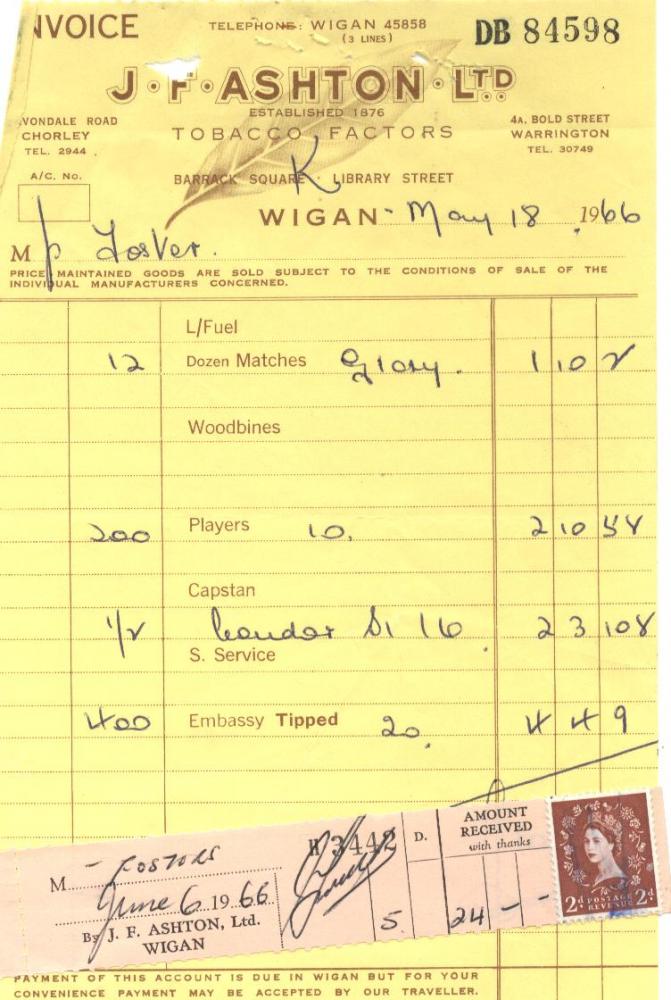 NVOICE
TELEPHONE: WIGAN 45858
(3 LINES)
DB 84598
J·F·ASHTON·LTD
ESTABLISHED 1876
TOBACCO FACTORS
VONDALE ROAD
CHORLEY
TEL. 2944
4A. BOLD STREET
WARRINGTON
TEL. 30749
A/C. No.
BARRACK SQUARE K LIBRARY STREET
WIGAN - May 18 1966
M Foster.
PRICE MAINTAINED GOODS ARE SOLD SUBJECT TO THE CONDITIONS OF SALE OF THE
INDIVIDUAL MANUFACTURERS CONCERNED.
L/Fuel
12 Dozen Matches Glory. 1 10 2
Woodbines
200 Players 10. 2 10
Capstan
1/2 Condor 16 2 3
S. Service
400 Embassy Tipped 20. 4 4 9
M - Fosters
June 6 1966
By J. F. ASHTON, Ltd.
WIGAN
3442
5.
D.
AMOUNT
RECEIVED
with thanks
24 - -
2d POSTAGE 2d
REVENUE
PAYMENT OF THIS ACCOUNT IS DUE IN WIGAN BUT FOR YOUR
CONVENIENCE PAYMENT MAY BE ACCEPTED BY OUR TRAVELLER.